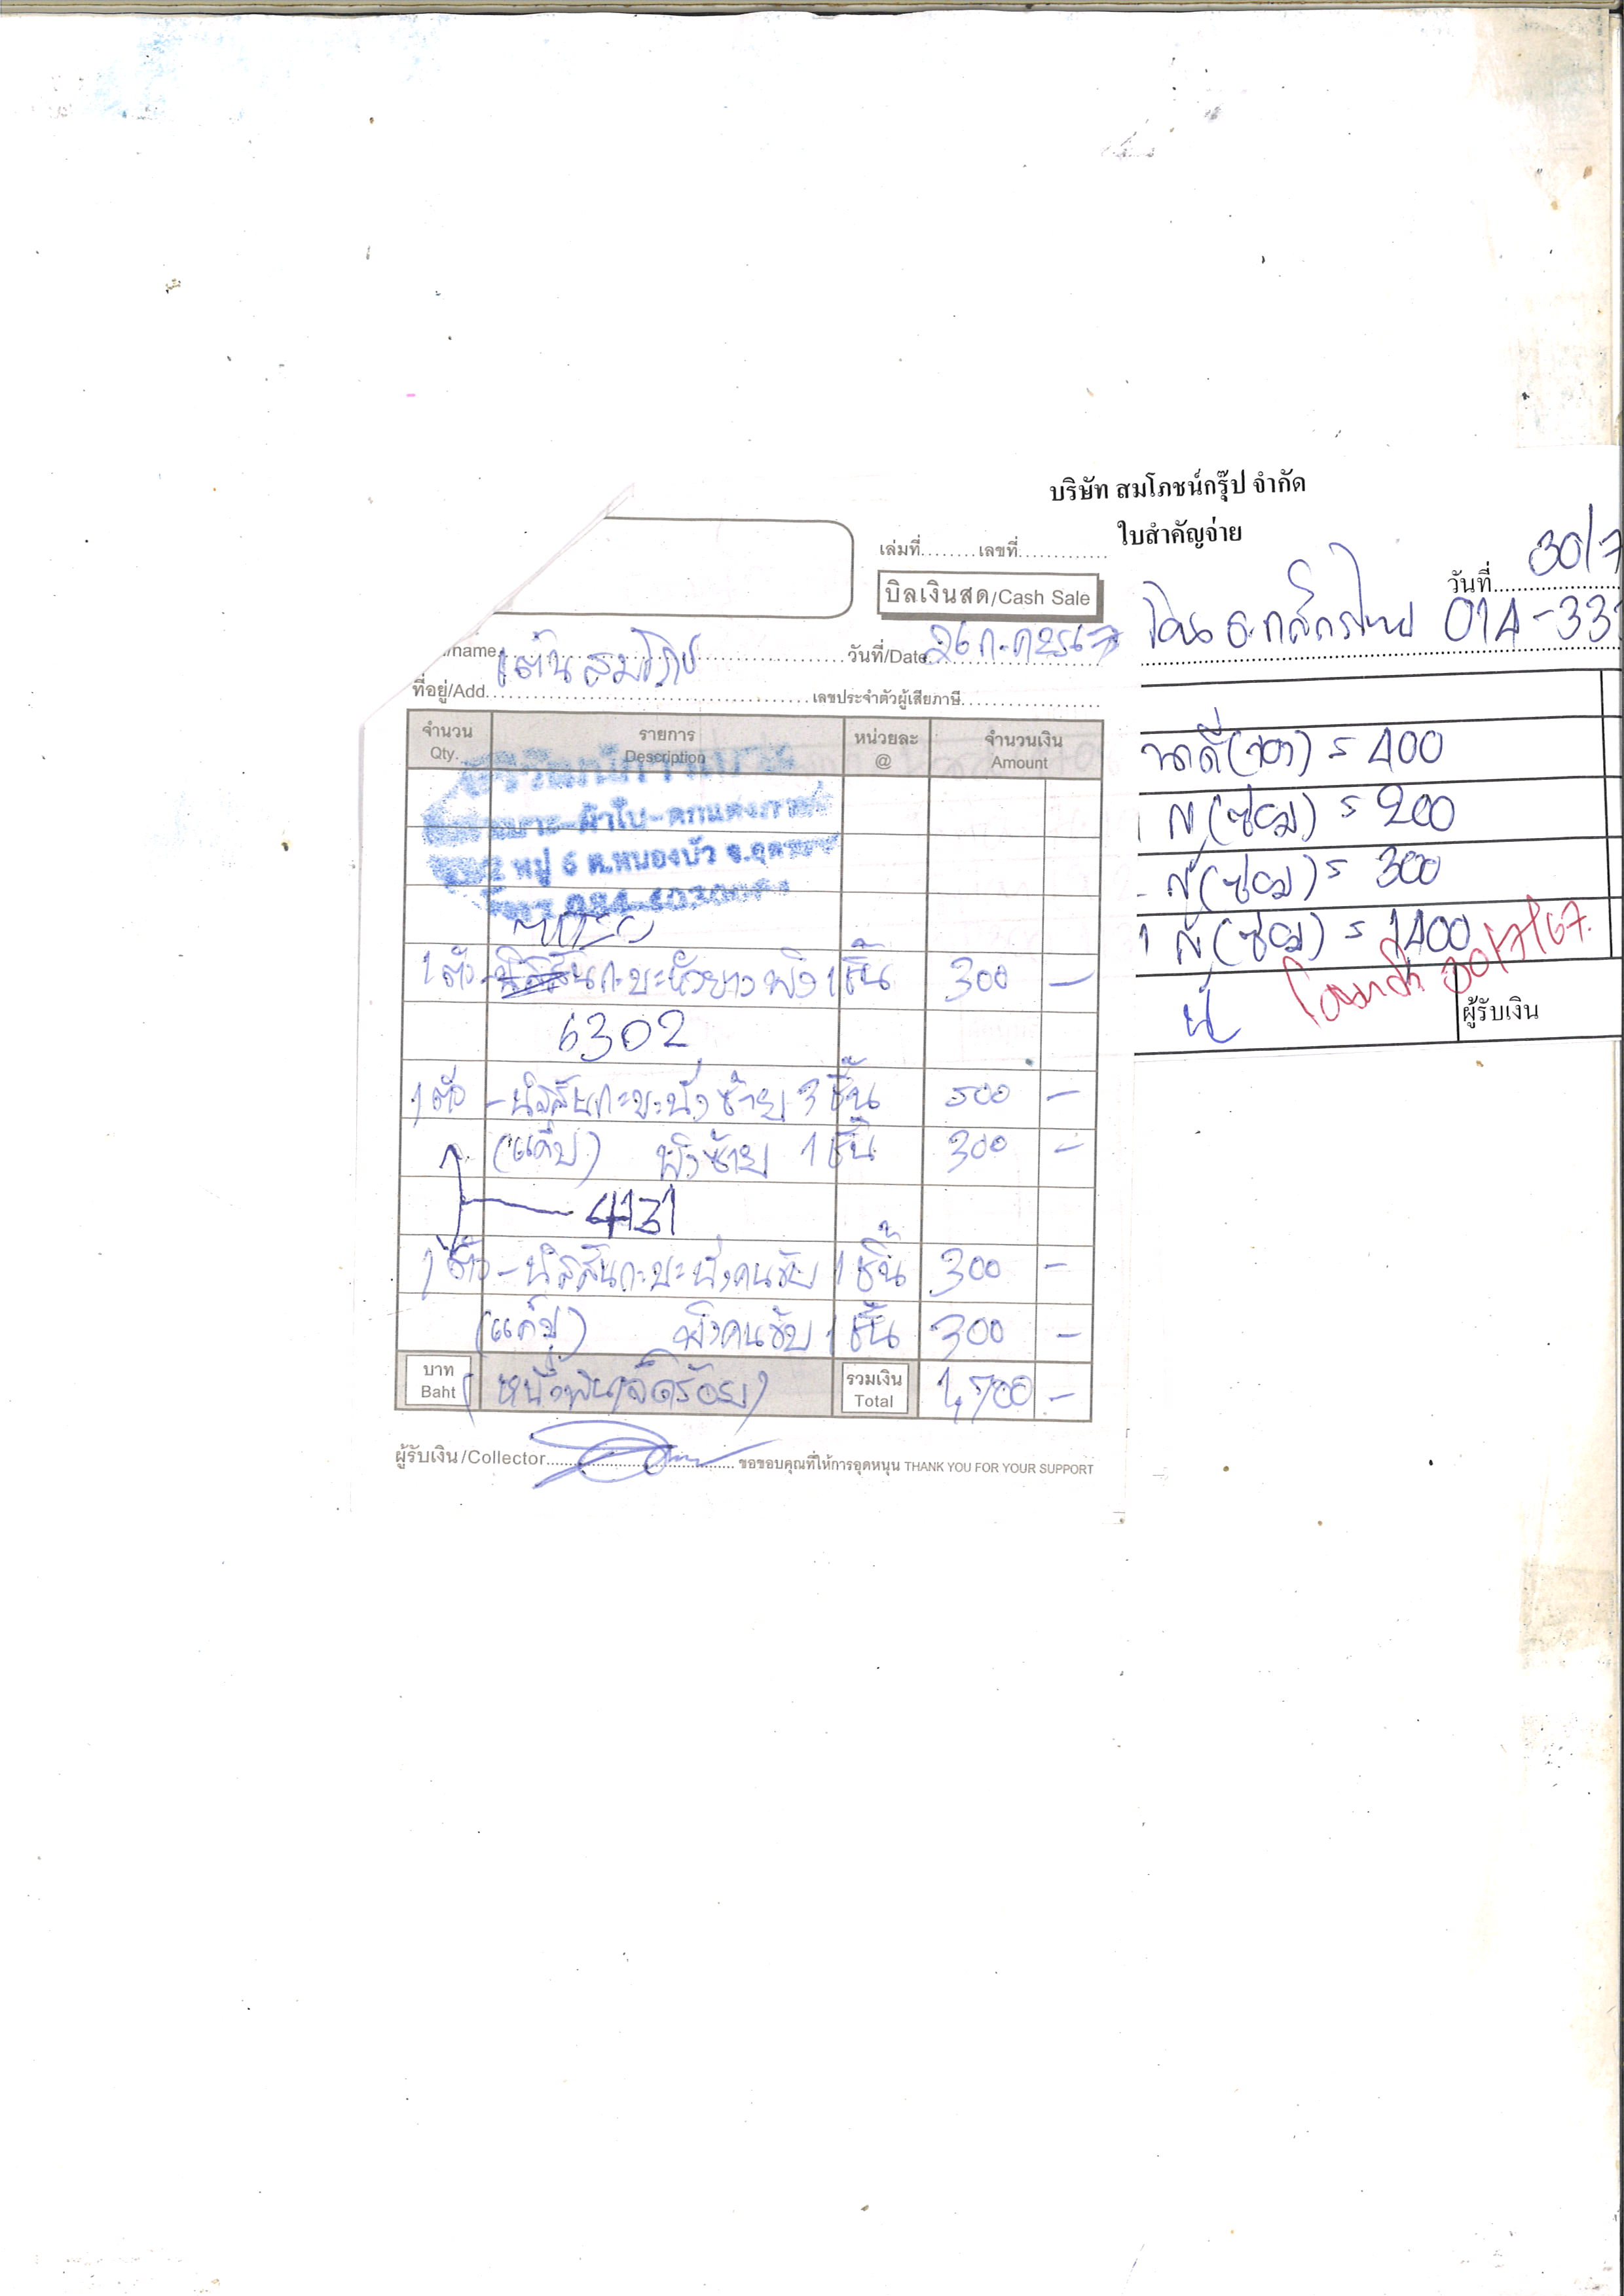 บริษัท สมโภชน์กรุ๊ป จำกัด
ใบสำคัญจ่าย
วันที่ 30/7
014-33
(ซ่อม) = 200
(ซ่อม) = 300
(ซ่อม) = 1400
30/7/67
ผู้รับเงิน
เล่มที่........เลขที่.............
บิลเงินสด/Cash Sale
/name เต้นสมโภช วันที่/Date 26 ก.ค 2567
ที่อยู่/Add. เลขประจำตัวผู้เสียภาษี
จำนวน รายการ หน่วยละ จำนวนเงิน
Qty. Description @ Amount
เบาะ-ผ้าใบ-ตกแต่งภายใน
หมู่ 6 ต.หนองบัว จ.อุดร
1 ตัว กะบะหัวยาว พิง 1 ชิ้น 300 -
6302
1 ตัว - นิสสันกะบะนั่งซ้าย 3 ชิ้น 500 -
(แค็ป) พิงซ้าย 1 ชิ้น 300 -
4131
1 ตัว - นิสสันกะบะนั่งคนขับ 1 ชิ้น 300 -
(แค็ป) พิงคนขับ 1 ชิ้น 300 -
บาท (หนึ่งพันเจ็ดร้อย) รวมเงิน 1,700 -
Baht Total
ผู้รับเงิน/Collector ขอขอบคุณที่ให้การอุดหนุน THANK YOU FOR YOUR SUPPORT